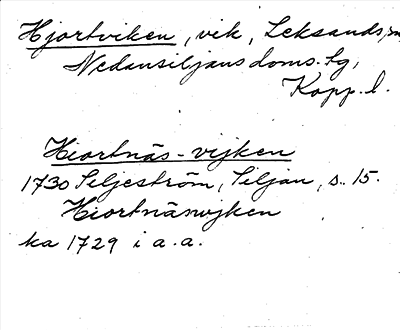 Hjortviken, vik, Leksands sn
Nedansiljans doms. tg,
Kopp. l.
Hiortnäs-vijken
1730 Seljeström, Siljan, s. 15.
Hiortnäswijken
ka 1729 i a.a.